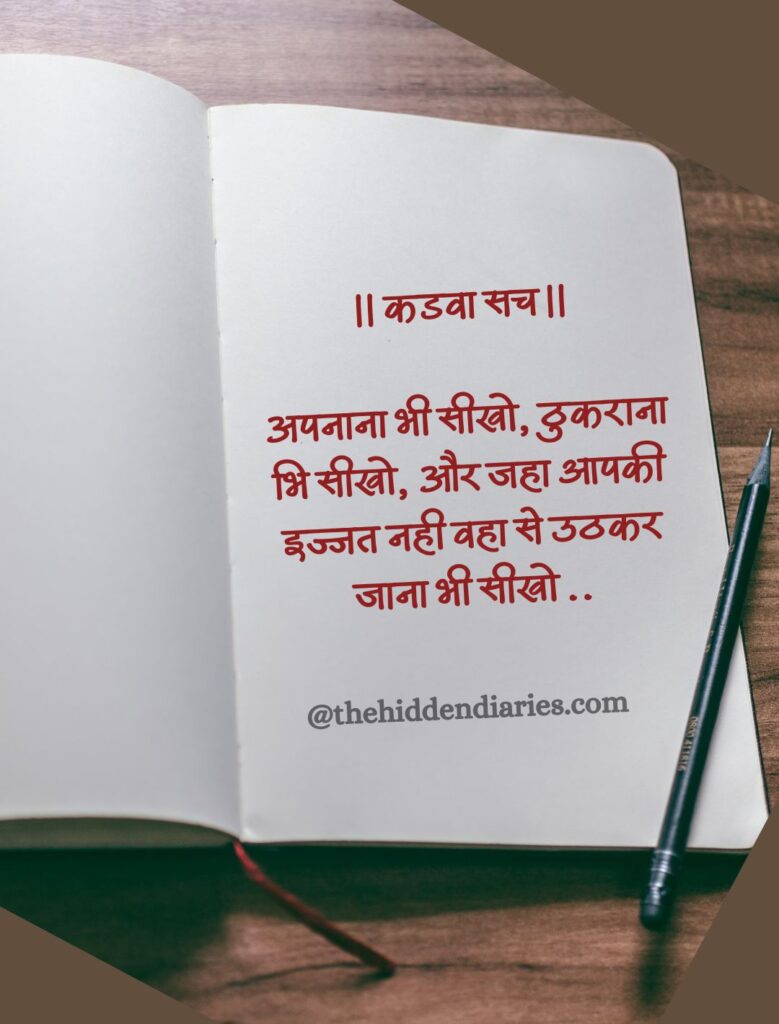 || कडवा सच ||
अपनाना भी सीखो, ठुकराना
भि सीखो, और जहा आपकी
इज्जत नही वहा से उठकर
जाना भी सीखो ..
@thehiddendiaries.com